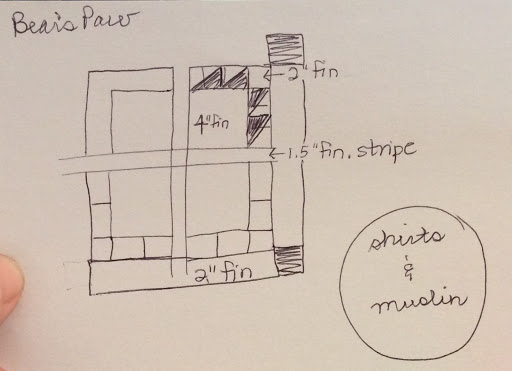 Bear's Paw
2" fin
4" fin
1.5" fin. stripe
2" fin
shirts
&
muslin